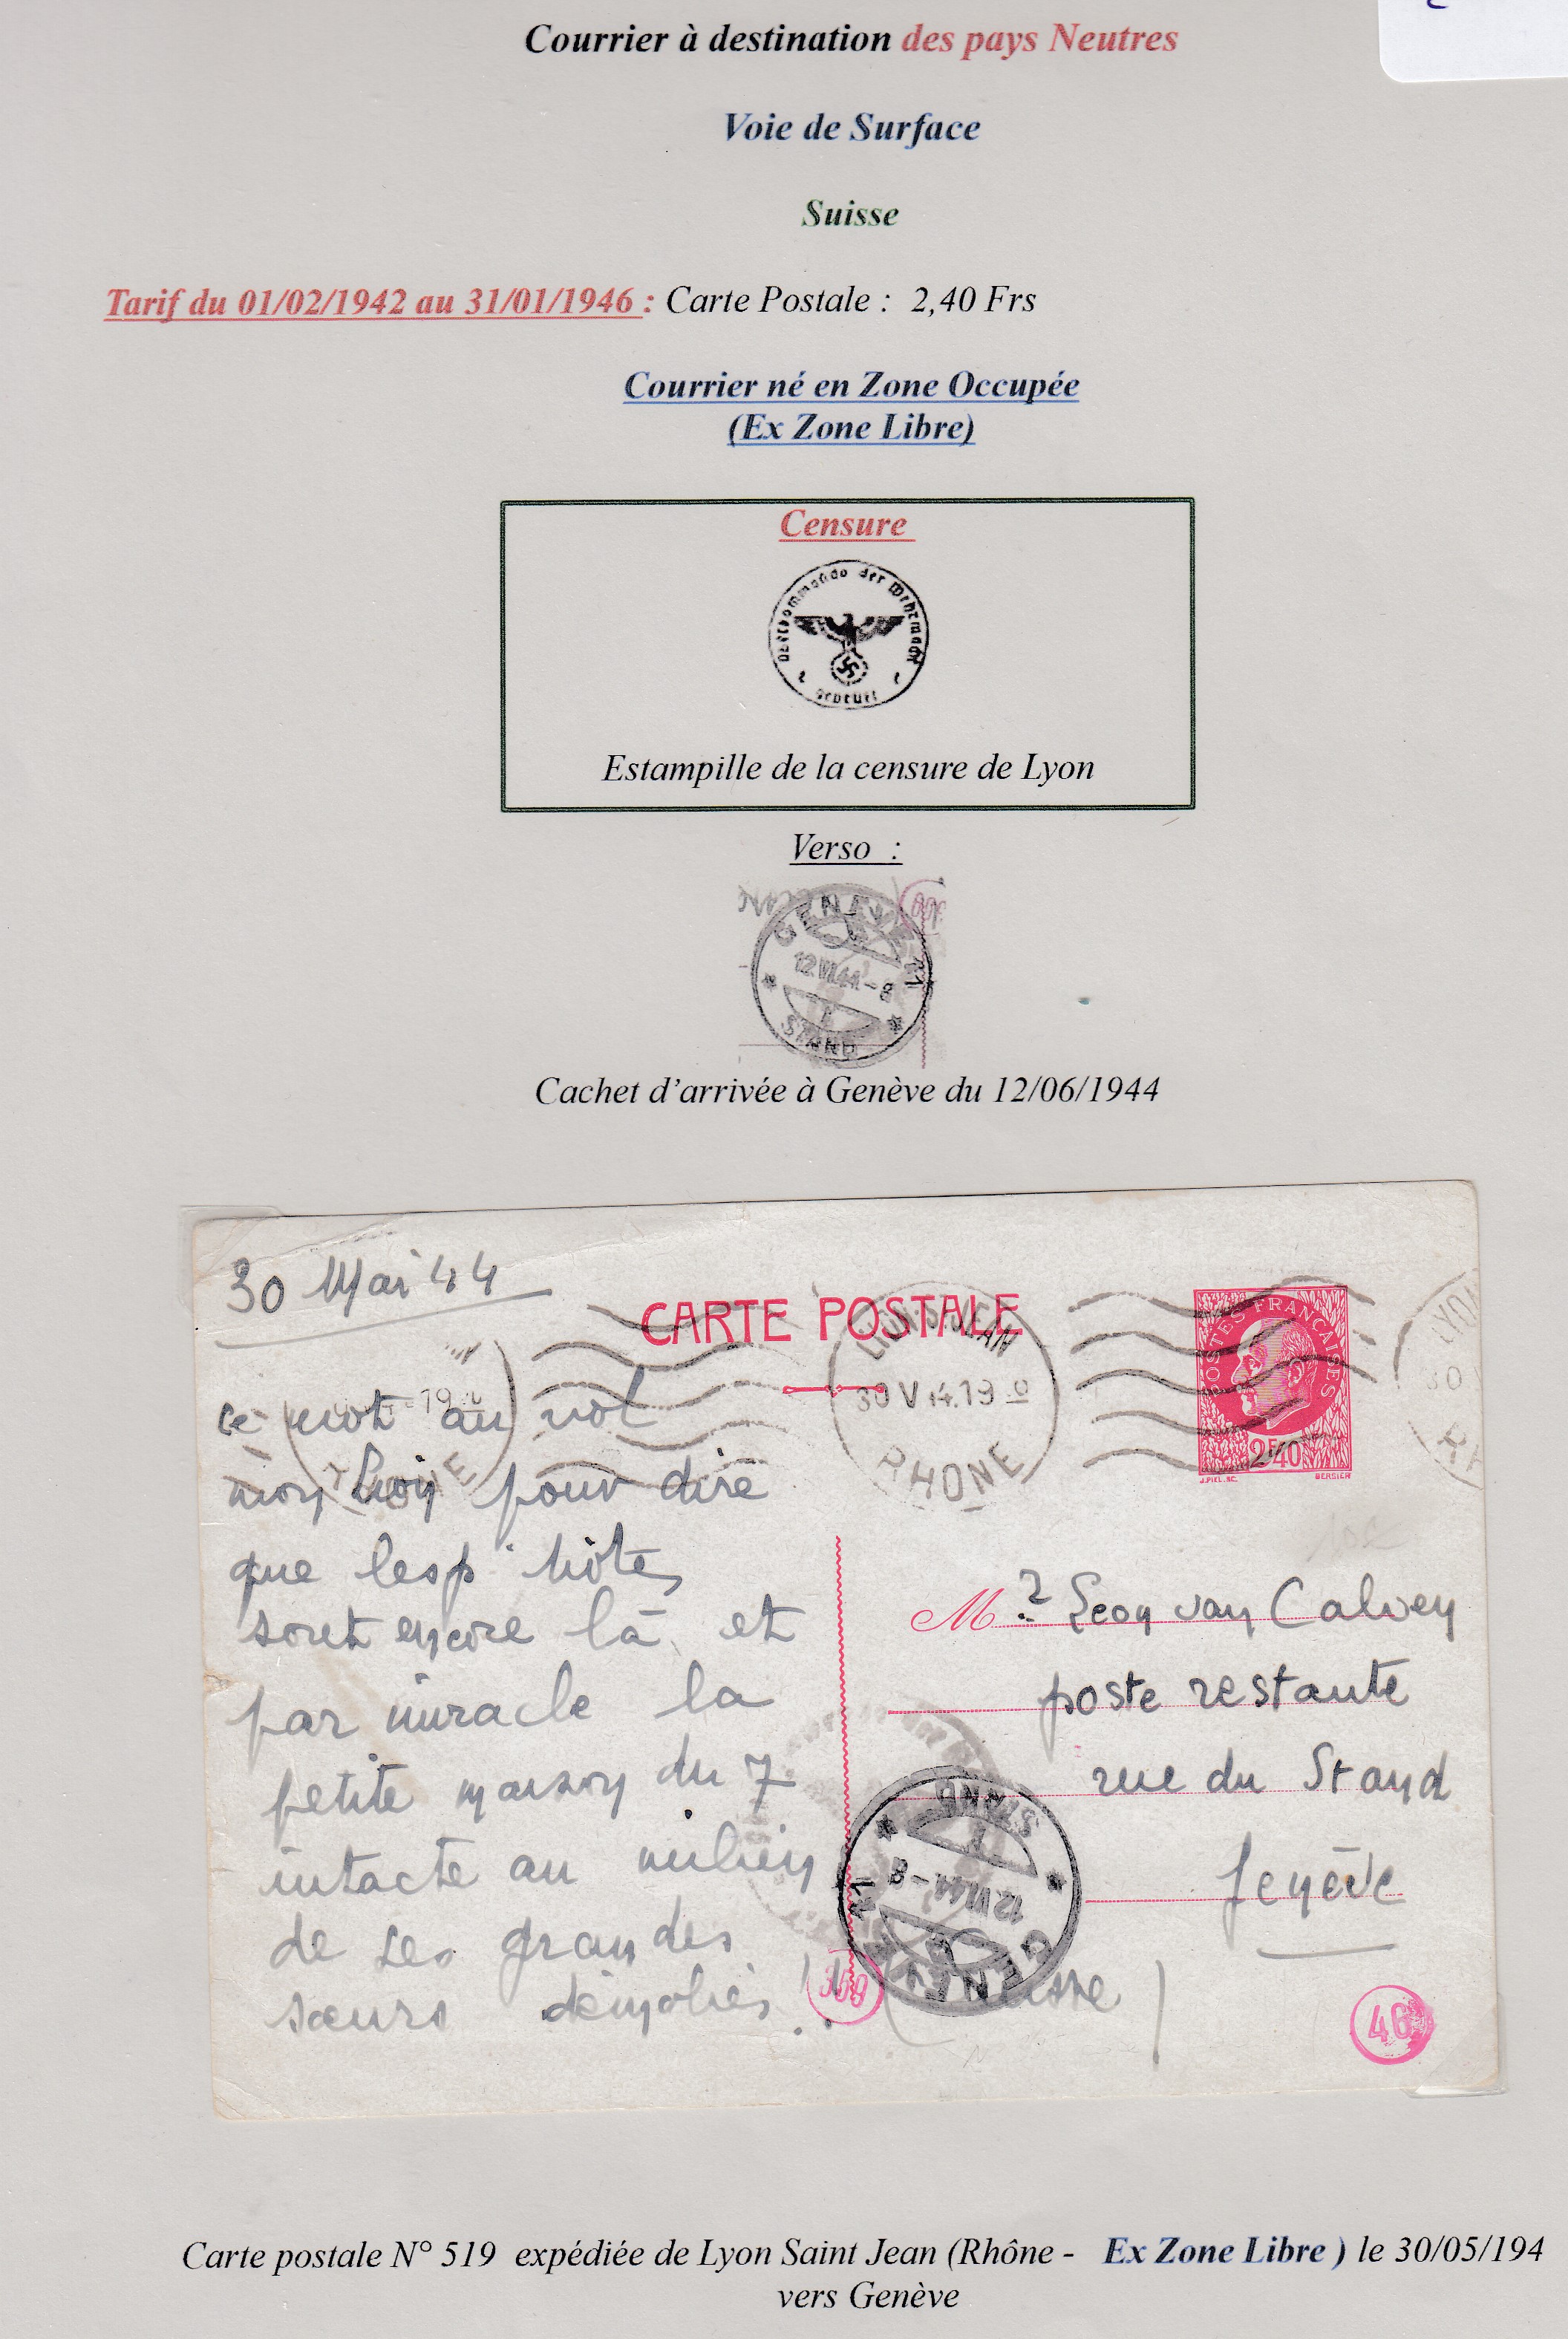 Courrier à destination des pays Neutres
Voie de Surface
Suisse
Tarif du 01/02/1942 au 31/01/1946 : Carte Postale : 2,40 Frs
Courrier né en Zone Occupée
(Ex Zone Libre)
Censure
der Wehrmacht
geprüft
Estampille de la censure de Lyon
Verso :
GENÈVE
12.VI.44.-8
STAND
Cachet d'arrivée à Genève du 12/06/1944
30 Mai 44
CARTE POSTALE
LYON-ST JEAN
30 V 44.19
RHONE
POSTES FRANÇAISES
2F40
J.PIEL.SC.
BERSIER
LYON
30
RH
19
RHONE
ce mot au vol
mon pour dire
que les hôtes
sont encore là, et
par miracle la
petite maison du 7
intacte au milieu
de ses grandes
sœurs démolies !!
Mr Leon van Calven
poste restante
rue du Stand
Genève
(Suisse)
STAND
12.VI.44.-8
GENÈVE
309
46
Carte postale N° 519 expédiée de Lyon Saint Jean (Rhône - Ex Zone Libre ) le 30/05/194
vers Genève